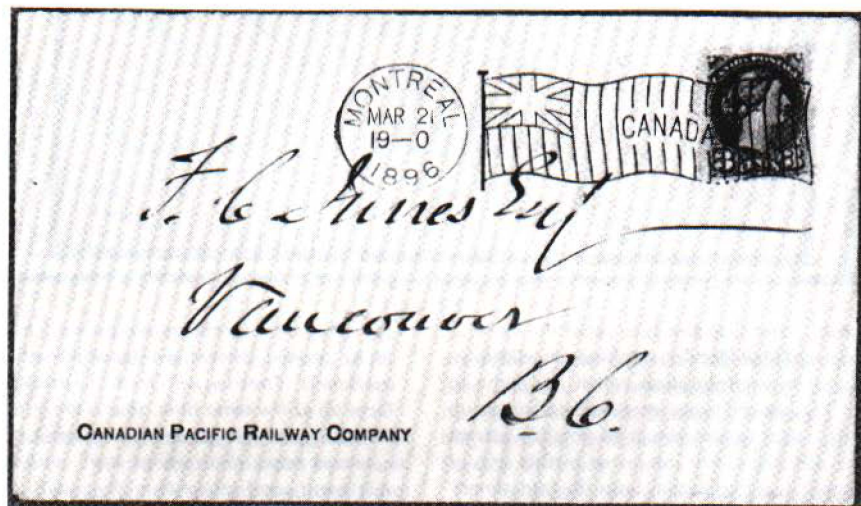 MONTREAL
MAR 21
19-0
1896
CANADA
F. C. Innes Esq
Vancouver
B.C.
CANADIAN PACIFIC RAILWAY COMPANY